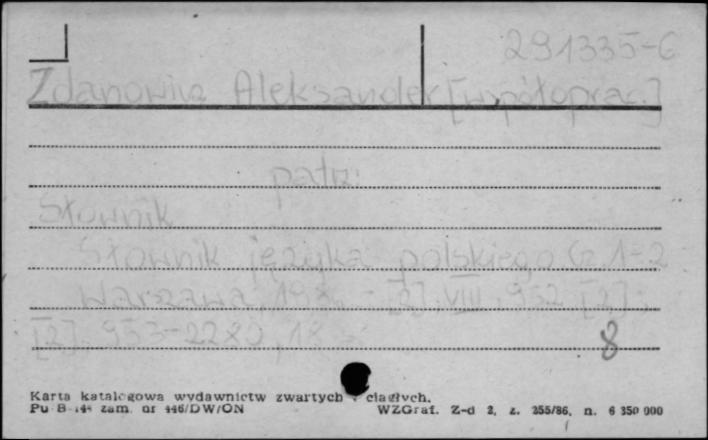 291335-C
Zdanowicz Aleksander [współoprac.]
patrz:
Słownik
Słownik języka polskiego Cz. 1-2
Warszawa, 198 - [2], VIII, 952 [2];
[2], 953-2280, 18
8
Karta katalogowa wydawnictw zwartych i ciągłych.
Pu B-144 zam. nr 446/DW/ON WZGraf. Z-d 2, z. 255/86, n. 6 350 000